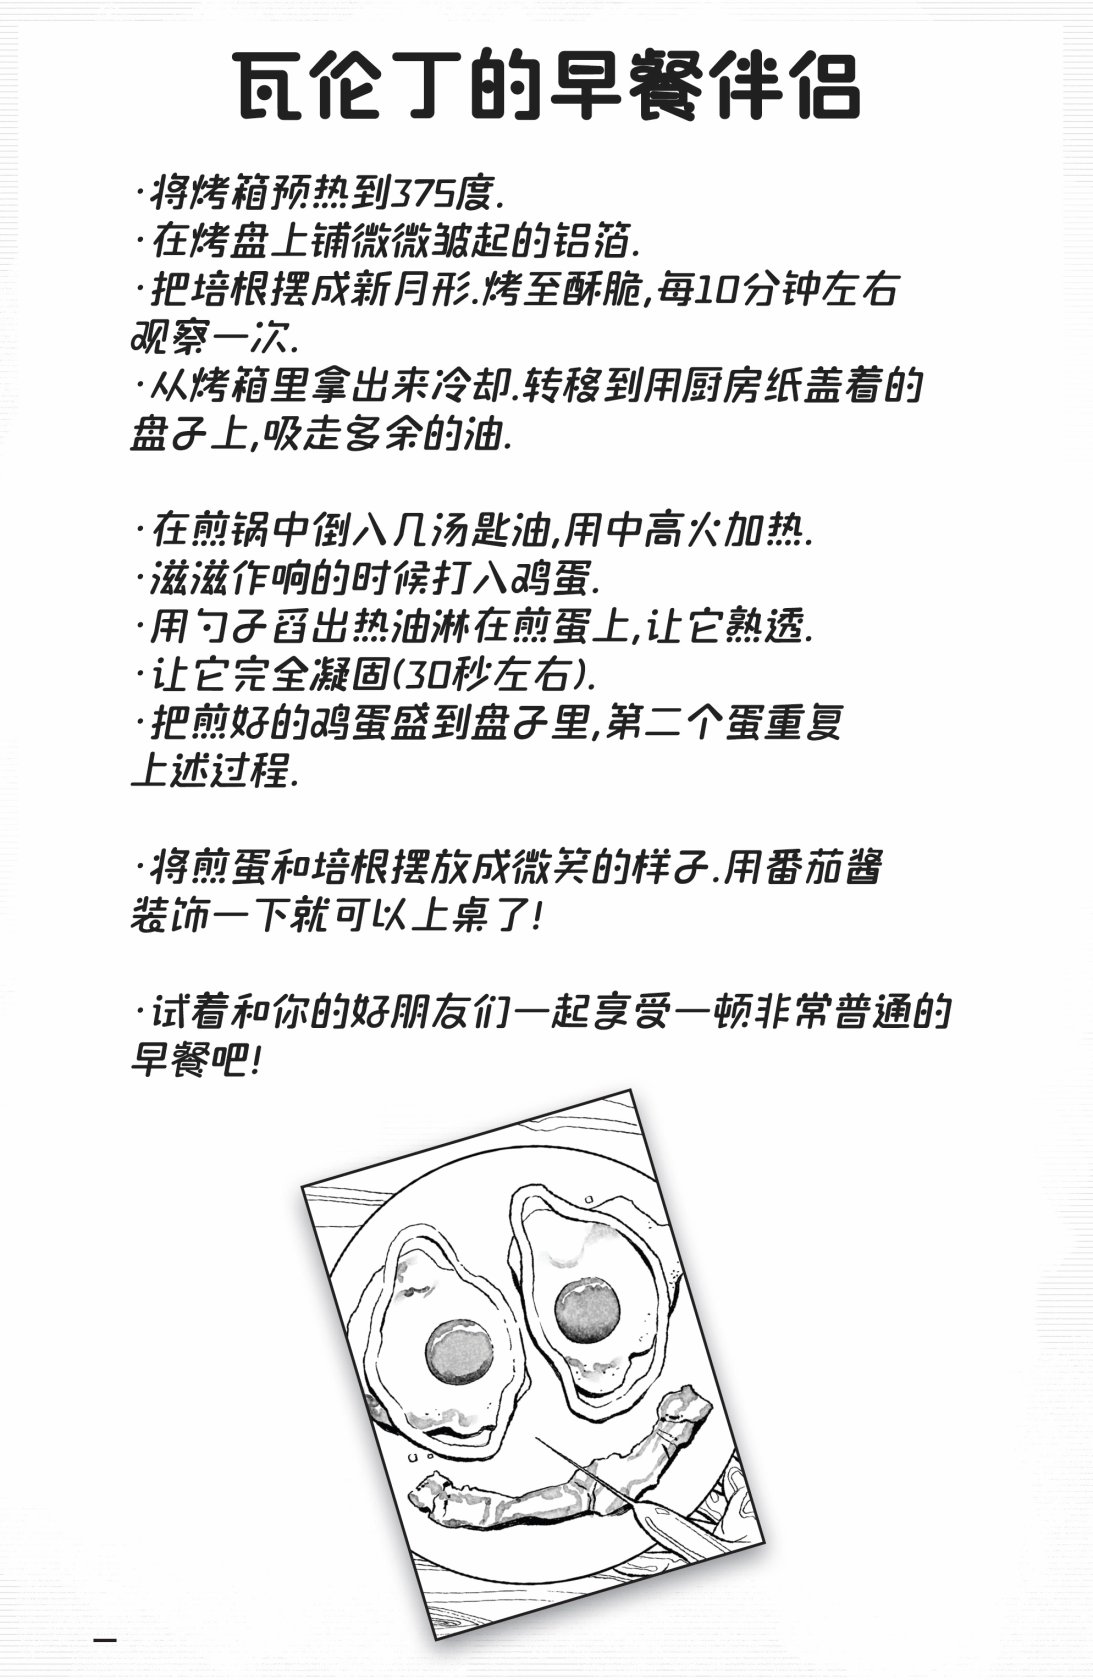 瓦伦丁的早餐伴侣
·将烤箱预热到375度.
·在烤盘上铺微微皱起的铝箔.
·把培根摆成新月形.烤至酥脆,每10分钟左右
观察一次.
·从烤箱里拿出来冷却.转移到用厨房纸盖着的
盘子上,吸走多余的油.
·在煎锅中倒入几汤匙油,用中高火加热.
·滋滋作响的时候打入鸡蛋.
·用勺子舀出热油淋在煎蛋上,让它熟透.
·让它完全凝固(30秒左右).
·把煎好的鸡蛋盛到盘子里,第二个蛋重复
上述过程.
·将煎蛋和培根摆放成微笑的样子.用番茄酱
装饰一下就可以上桌了!
·试着和你的好朋友们一起享受一顿非常普通的
早餐吧!